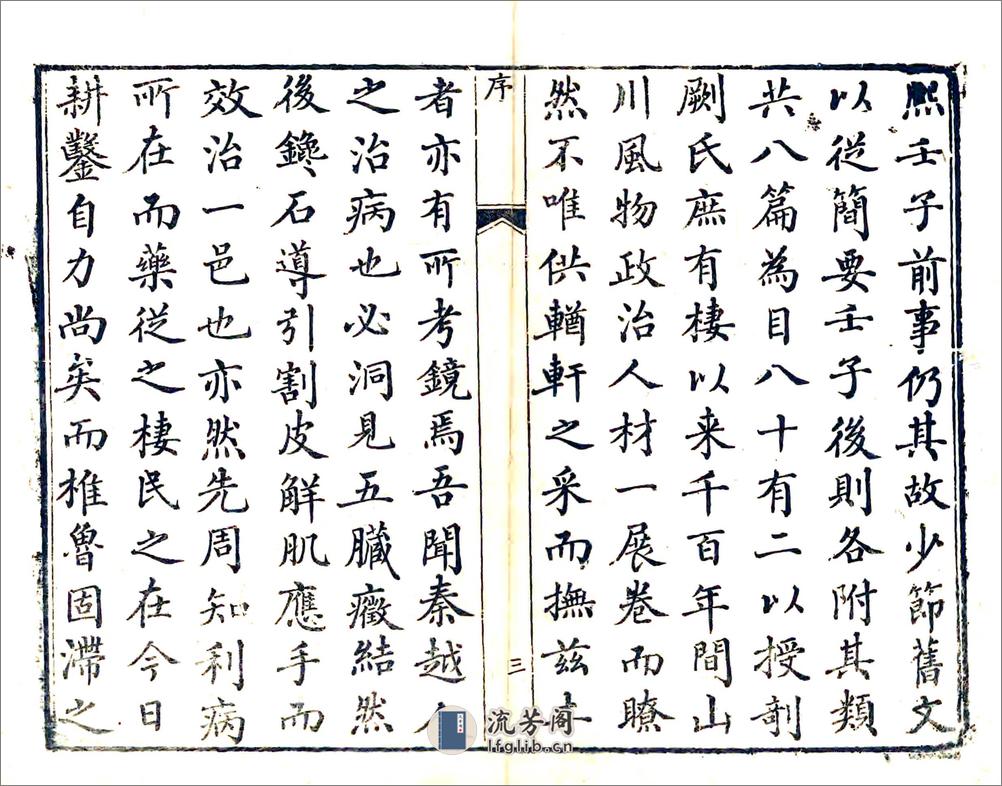 熙壬子前事仍其故少節舊文
以從簡要壬子後則各附其類
共八篇為目八十有二以授剞
劂氏庶有棲以来千百年間山
川風物政治人材一展卷而瞭
然不唯供輶軒之采而撫兹土
序
三
者亦有所考鏡焉吾聞秦越人
之治病也必洞見五臟癥結然
後鑱石導引割皮解肌應手而
效治一邑也亦然先周知利病
所在而藥從之棲民之在今日
耕鑿自力尚矣而椎魯固滯之
流芳阁
lfglib.cn